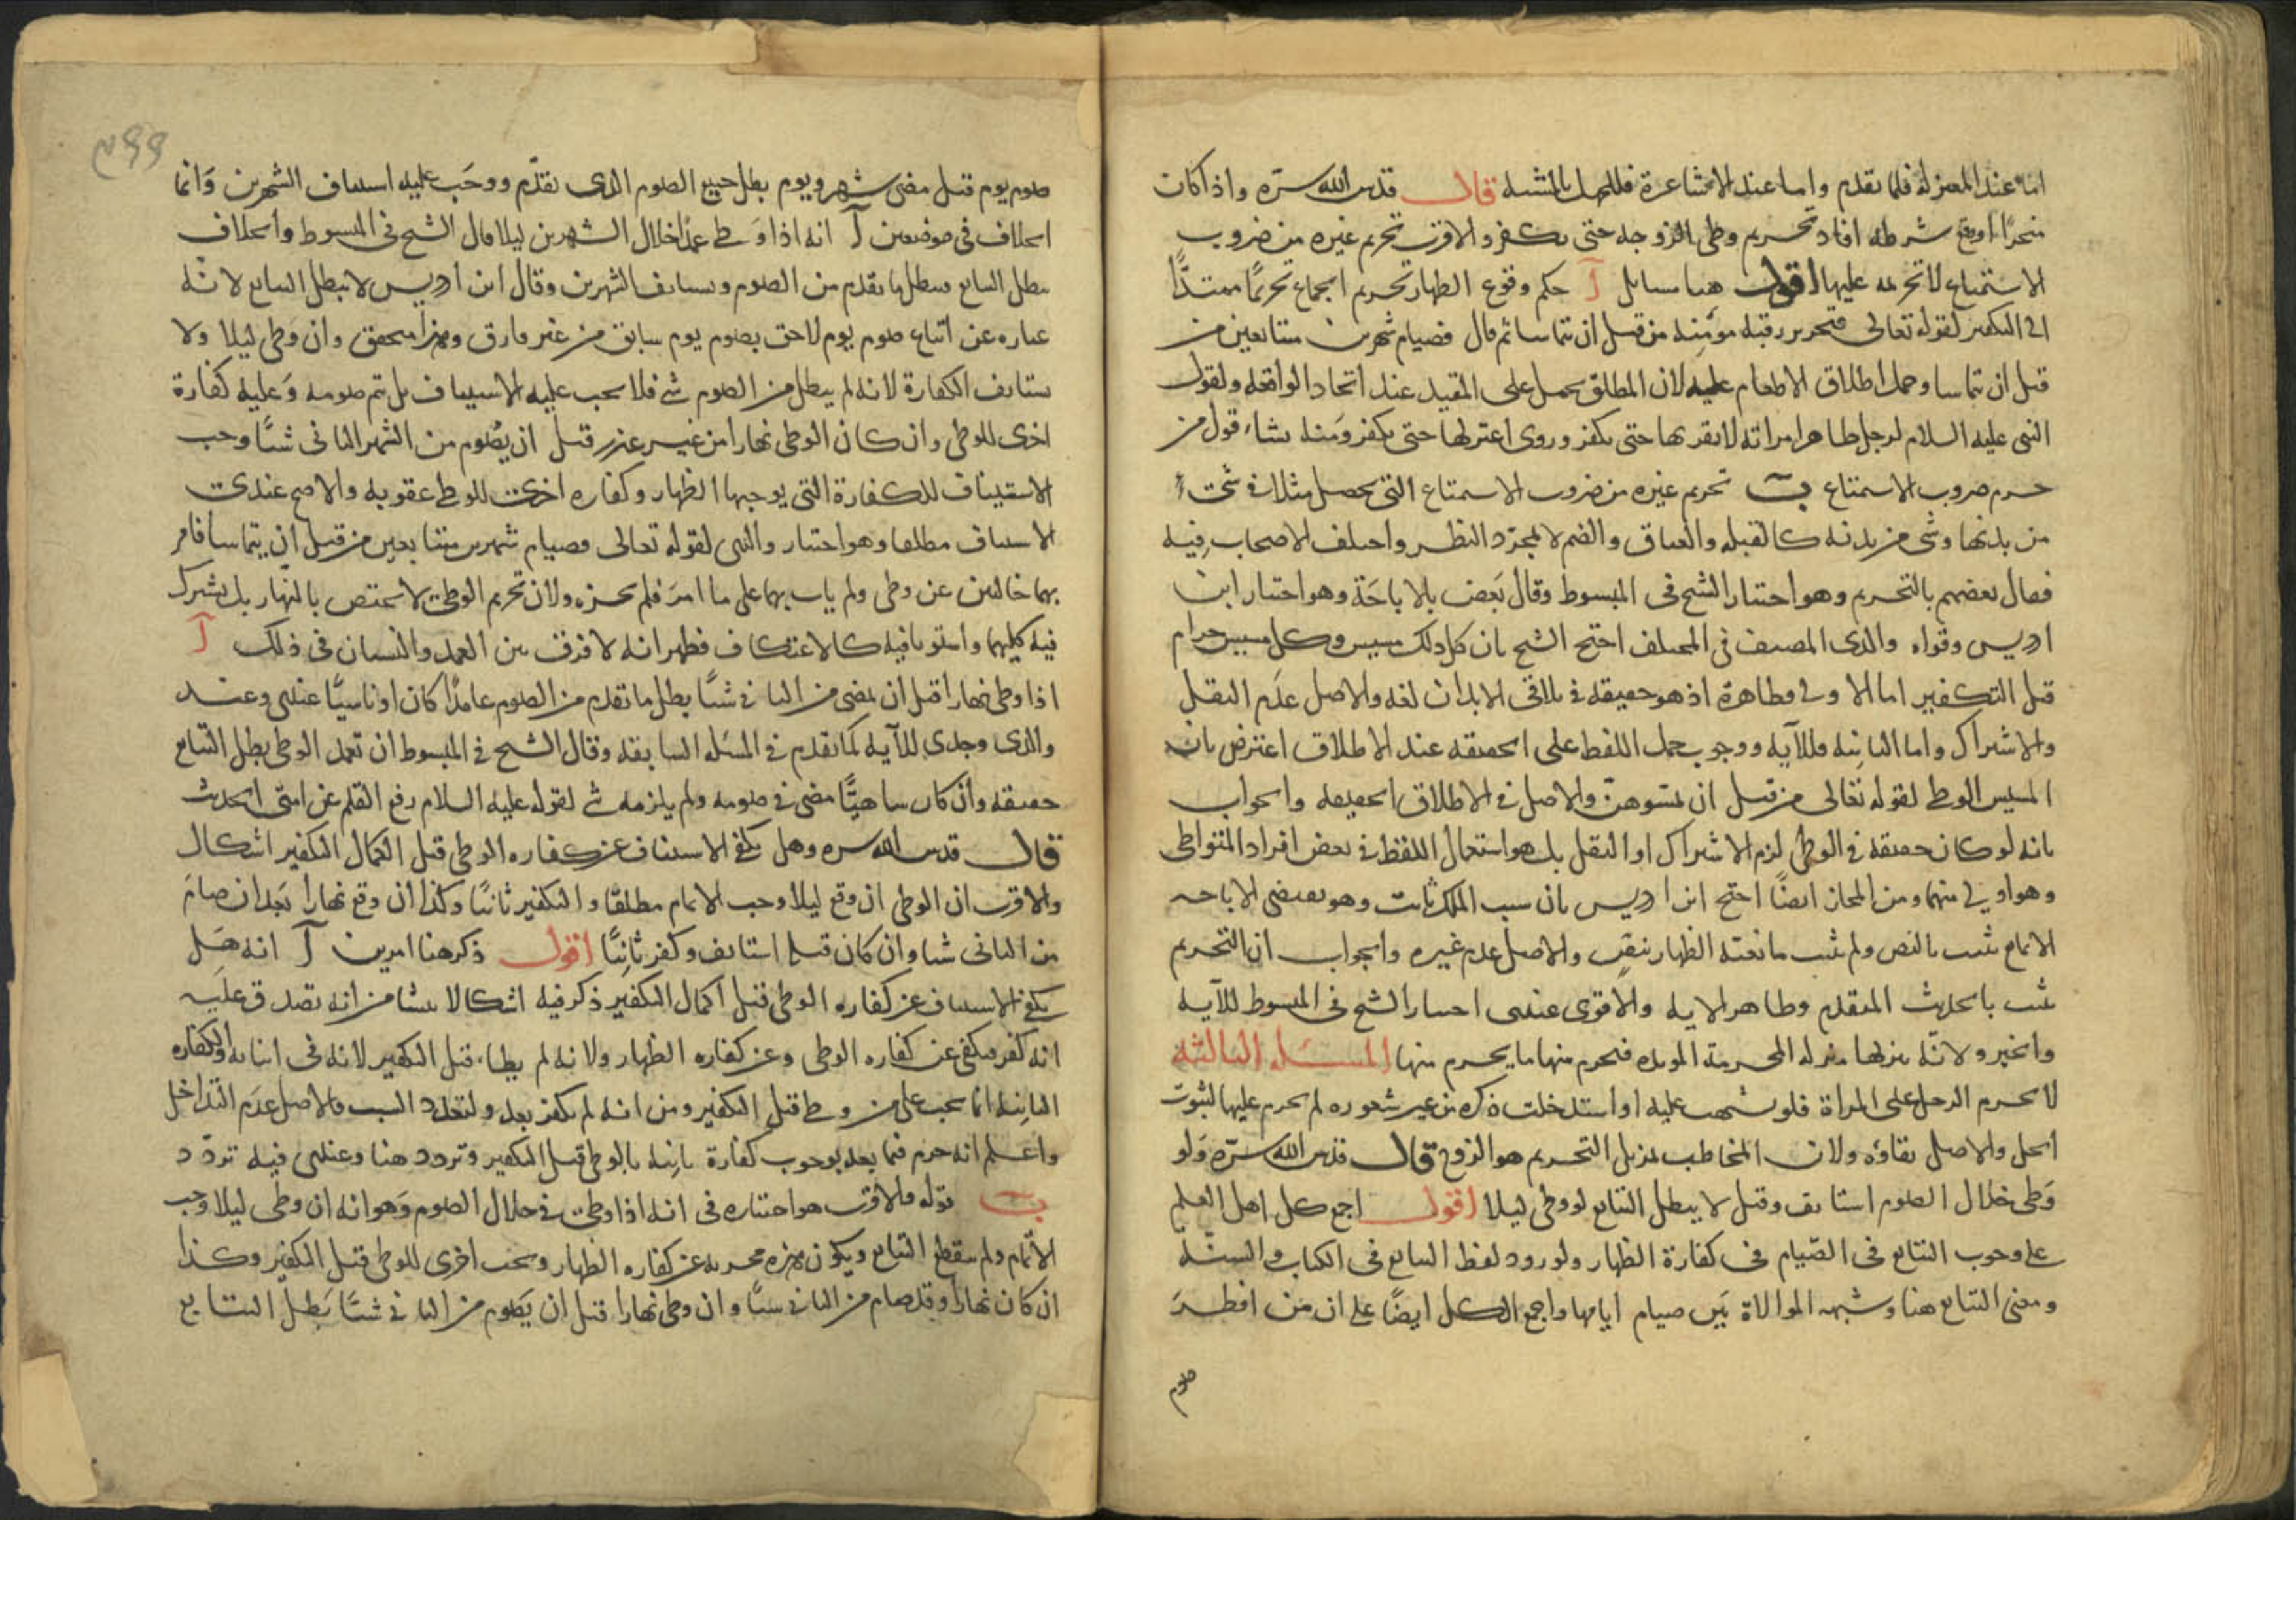 اما عند المعتزلة فلما تقدم واما عند الاشاعرة فللجهل بالمشبه قال قدس الله سره واذا كان
منجزا او وقع شرطه افاد تحريم وطى الزوجة حتى يكفر والاقرب تحريم غيره من ضروب
الاستمتاع لا تحرمه عليها اقول هنا مسايل آ حكم وقوع الظهار تحريم الجماع تحريما ممتدا
الى التكفير لقوله تعالى فتحرير رقبة مؤمنة من قبل ان يتماسا ثم قال فصيام شهرين متتابعين من
قبل ان يتماسا وحمل اطلاق الاطعام عليه لان المطلق يحمل على المقيد عند اتحاد الواقعة ولقول
النبى عليه السلام لرجل ظاهر امراته لا تقربها حتى تكفر وروى اعتزلها حتى تكفر ومنه نشاء قول من
حرم ضروب الاستمتاع ب تحريم غيره من ضروب الاستمتاع التى يحصل مثلا فى شىء
من بدنها وشى من بدنه كالقبلة والعناق والضم لا بمجرد النظر واختلف الاصحاب فيه
فقال بعضهم بالتحريم وهو اختيار الشيخ فى المبسوط وقال بعض بالاباحة وهو اختيار ابن
ادريس وقواه والدى المصنف فى المختلف احتج الشيخ بان كل ذلك مسيس وكل مسيس حرام
قبل التكفير اما الاولى فظاهرة اذ هو حقيقة فى تلاقى الابدان لغة والاصل عدم النقل
والاشتراك واما الثانية فللآية ووجوب حمل اللفظ على الحقيقة عند الاطلاق اعترض بان
المسيس الوطى لقوله تعالى من قبل ان تمسوهن والاصل فى الاطلاق الحقيقة والجواب
بانه لو كان حقيقة فى الوطى لزم الاشتراك او النقل بل هو استعمال اللفظ فى بعض افراد المتواطى
وهو اولى منهما ومن المجاز ايضا احتج ابن ادريس بان سبب الملك ثابت وهو يقتضى الاباحة
الامامع ثبت بالنص ولم يثبت مانعية الظهار بنص والاصل عدم غيره والجواب ان التحريم
ثبت بالحديث المتقدم وظاهر الاية والاقوى عندى اختيار الشيخ فى المبسوط للآية
والخبر ولانه ينزلها منزلة المحرمة الموبدة فيحرم منها ما يحرم منها المسئلة الثالثة
لا يحرم الرجل على المراة فلو شبهت عليه او استدخلت ذكره من غير شعوره لم يحرم عليها لثبوت
الحل والاصل بقاؤه ولان المخاطب بمزيل التحريم هو الزوج قال قدس الله سره ولو
وطى خلال الصوم استانف وقيل لا يبطل التتابع لو وطى ليلا اقول اجمع كل اهل العلم
على وجوب التتابع فى الصيام فى كفارة الظهار ولورود لفظ التتابع فى الكتاب والسنة
ومعنى التتابع هنا وشبهه الموالاة بين صيام ايامها واجمع الكل ايضا على ان من افطر
صوم
صوم يوم قبل مضى شهر ويوم بطل جميع الصوم الذى تقدم ووجب عليه استيناف الشهرين وانما
اختلاف فى موضعين آ انه اذا وطى عمدا خلال الشهرين ليلا قال الشيخ فى المبسوط والخلاف
يبطل التتابع فيبطل ما تقدم من الصوم ويستانف الشهرين وقال ابن ادريس لا يبطل التتابع لانه
عبارة عن اتباع صوم يوم لاحق بصوم يوم سابق من غير فارق وهذا متحقق وان وطى ليلا ولا
يستانف الكفارة لانه لم يبطل من الصوم شى فلا يجب عليه الاستيناف بل يتم صومه وعليه كفارة
اخرى للوطى وان كان الوطى نهارا من غير عذر قبل ان يصوم من الشهر الثانى شيئا وجب
الاستيناف للكفارة التى يوجبها الظهار وكفارة اخرى للوطى عقوبة والاصح عندى
الاستيناف مطلقا وهو اختيار والدى لقوله تعالى فصيام شهرين متتابعين من قبل ان يتماسا فامر
بهما خاليين عن وطى ولم يات بهما على ما امر فلم يجزه ولان تحريم الوطى لا يختص بالنهار بل يشترك
فيه كليهما واستويا فيه كالاعتكاف فظهر انه لا فرق بين العمد والنسيان فى ذلك آ
اذا وطى نهارا قبل ان يمضى من الثانى شيئا بطل ما تقدم من الصوم عامدا كان او ناسيا عندى وعند
والدى وجدى للآية كما تقدم فى المسئلة السابقة وقال الشيخ فى المبسوط ان تعمد الوطى بطل التتابع
حقيقة وان كان ساهيا مضى فى صومه ولم يلزمه شى لقوله عليه السلام رفع القلم عن امتى الحديث
قال قدس الله سره وهل يكفى الاستيناف عن كفارة الوطى قبل اكمال التكفير اشكال
والاقرب ان الوطى ان وقع ليلا وجب الاتمام مطلقا والتكفير ثانيا وكذا ان وقع نهارا بعد ان صام
من الثانى شيئا وان كان قبله استانف وكفر ثانيا اقول ذكر هنا امرين آ انه هل
يكفى الاستيناف عن كفارة الوطى قبل اكمال التكفير ذكر فيه اشكالا ينشا من انه تصدق عليه
انه كفر فيكفى عن كفارة الوطى وعن كفارة الظهار ولانه لم يطاء قبل التكفير لانه فى اثنائه والكفارة
الثانية انما يجب على من وطى قبل التكفير ومن انه لم يكفر بعد ولتعدد السبب والاصل عدم التداخل
واعلم انه جزم فيما بعد بوجوب كفارة ثانية بالوطى قبل التكفير وتردد هنا وعندى فيه تردد
ب قوله والاقرب هو اختياره فى انه اذا وطى فى خلال الصوم وهو انه ان وطى ليلا وجب
الاتمام ولم يسقط التتابع ويكون هذه مجزية عن كفارة الظهار ويجب اخرى للوطى قبل التكفير وكذا
ان كان نهارا وقد صام من الثانى شيئا وان وطى نهارا قبل ان يصوم من الثانى شيئا بطل التتابع